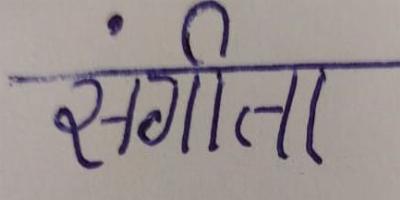 संगीता